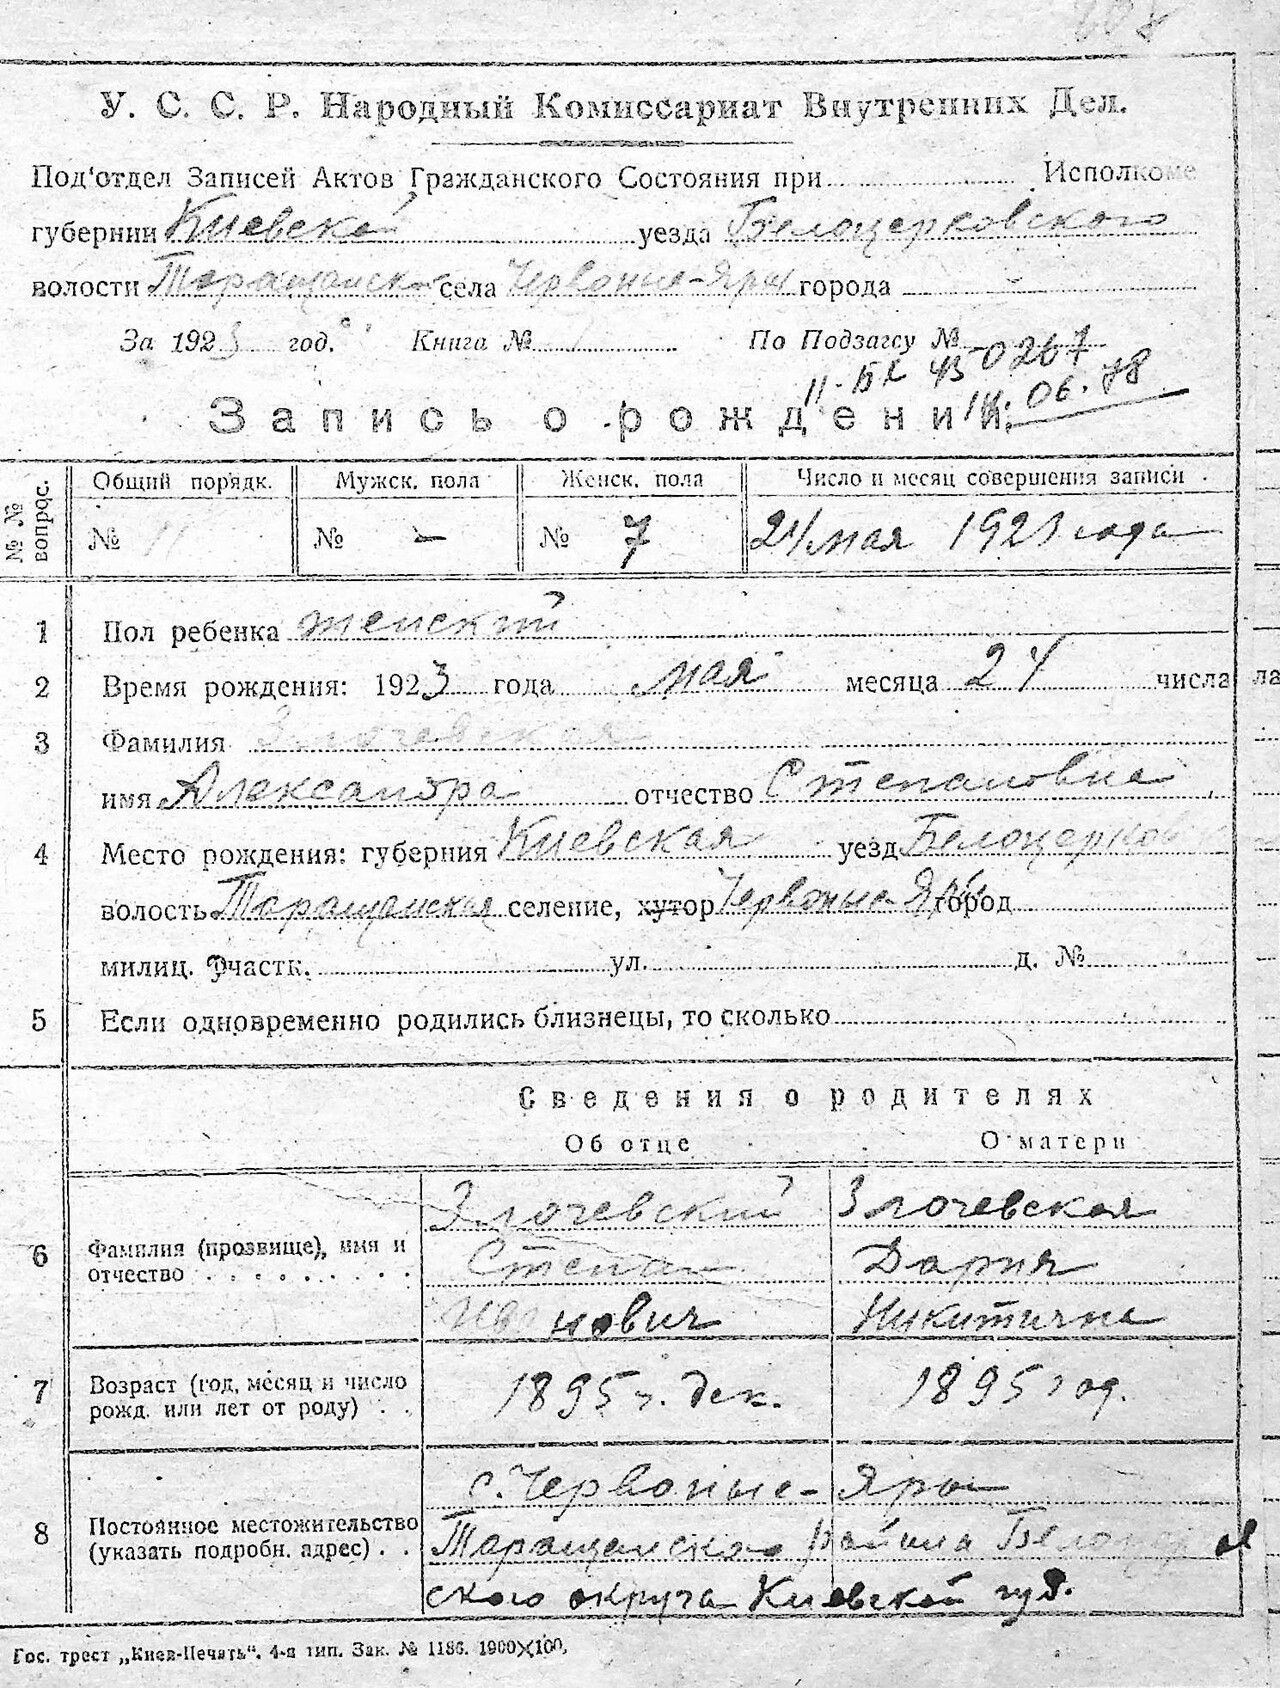 У. С. С. Р. Народный Комиссариат Внутренних Дел.
Под'отдел Записей Актов Гражданского Состояния при Исполкоме
губернии Киевской уезда Белоцерковского
волости Таращанской села Червоные-Яры города
За 1923 год. Книга № По Подзагсу №
II-БК 45 0267
06.78
Запись о рождении.
№ № вопрос. Общий порядк. Мужск. пола Женск. пола Число и месяц совершения записи
№ 11 № — № 7 24 мая 1923 года
1 Пол ребенка женский
2 Время рождения: 1923 года мая месяца 24 числа
3 Фамилия Злочевская
имя Александра отчество Степановна
4 Место рождения: губерния Киевская уезд Белоцерков
волость Таращанская селение, хутор Червоные Яры город
милиц. участк. ул. д. №
5 Если одновременно родились близнецы, то сколько
Сведения о родителях
Об отце О матери
6 Фамилия (прозвище), имя и отчество Злочевский Степан Иванович Злочевская Дария Никитична
7 Возраст (год, месяц и число рожд. или лет от роду) 1895 г. дек. 1895 год.
8 Постоянное местожительство (указать подробн. адрес) с. Червоные-Яры
Таращанского района Белоцер
ского округа Киевской губ.
Гос. трест „Киев-Печать“. 4-я тип. Зак. № 1186. 1900×100.